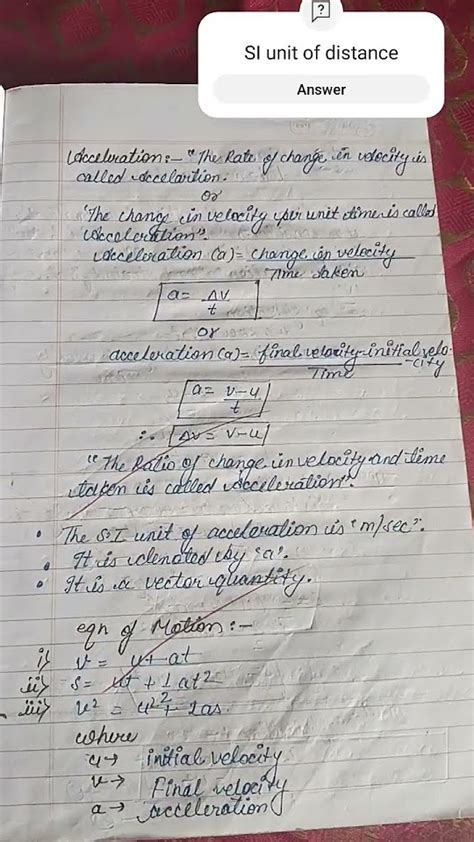 SI unit of distance
Answer
Acceleration:- "The Rate of change in velocity is
called Accelartion.
or
'The change in velocity per unit time is called
Acceleration".
Acceleration (a) = change in velocity
Time taken
a = ΔV
t
or
acceleration (a) = final velocity-initial velo-
Time -city
a = v-u
t
∴ Δv = v-u
"The Ratio of change in velocity and time
taken is called Acceleration".
• The S.I unit of acceleration is "m/sec".
• It is denoted by 'a'.
• It is a vector quantity.
eqn of Motion :-
i) v = u+at
ii) s = ut + 1at²
iii) v² = u² + 2as
where
u→ initial velocity
v→ final velocity
a→ acceleration